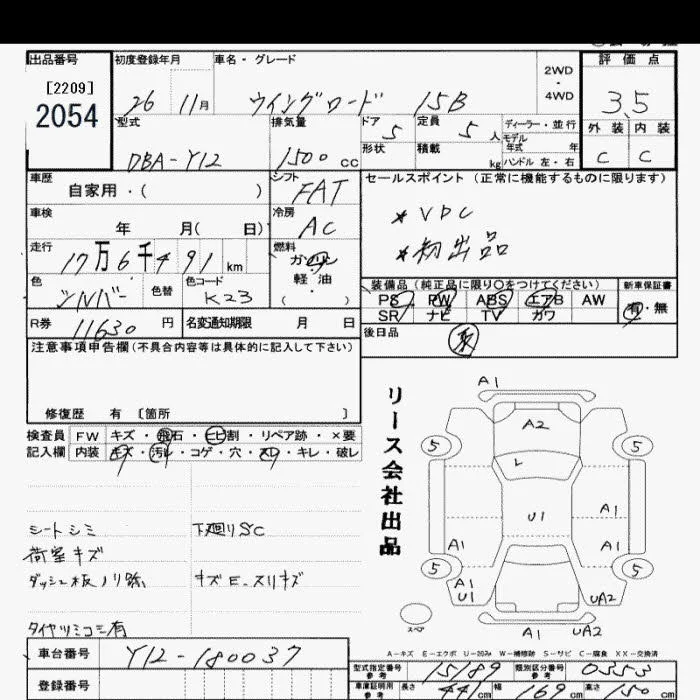 出品番号 初度登録年月 車名・グレード 2WD ・ 4WD 評価点
[2209]
2054
26 11月 ウイングロード 15B 3.5
型式 排気量 ドア 定員 ディーラー・並行 外装 内装
DBA-Y12 1500cc 5 5人 モデル年式 年 C C
形状 積載 kg ハンドル 左・右
車歴 シフト セールスポイント (正常に機能するものに限ります)
自家用・( ) FAT
車検 冷房 *VDC
年 月( 日) AC
走行 燃料
17万6千491km ガソリン 軽油 ( ・ )
色 色替 色コード 装備品 (純正品に限り○をつけてください) 新車保証書
シルバー K23 PS PW ABS エアB AW 有・無
SR ナビ TV カワ
R券 11630円 名変通知期限 月 日 後日品
注意事項申告欄 (不具合内容等は具体的に記入して下さい)
修復歴 有 [箇所 ]
検査員 FW キズ・飛石・ヒビ割・リペア跡・×要
記入欄 内装 キズ・汚レ・コゲ・穴・スレ・キレ・破レ
リース会社出品
A1
A2
5 5
L
U1 A1
A1 A1
5 5
A1
U1
UA2
スペア A1 UA2
シートシミ 下廻りSC
荷室キズ
ダッシュ板ノリ跡 キズE.スリキズ
タイヤツミコミ有
A-キズ E-エクボ U-凹み W-補修跡 S-サビ C-腐食 XX-交換済
車台番号 Y12-180037
型式指定番号 参考 15189 類別区分番号 参考 0353
登録番号
車庫証明用 参考 長さ 441cm 幅 169cm 高さ 150cm